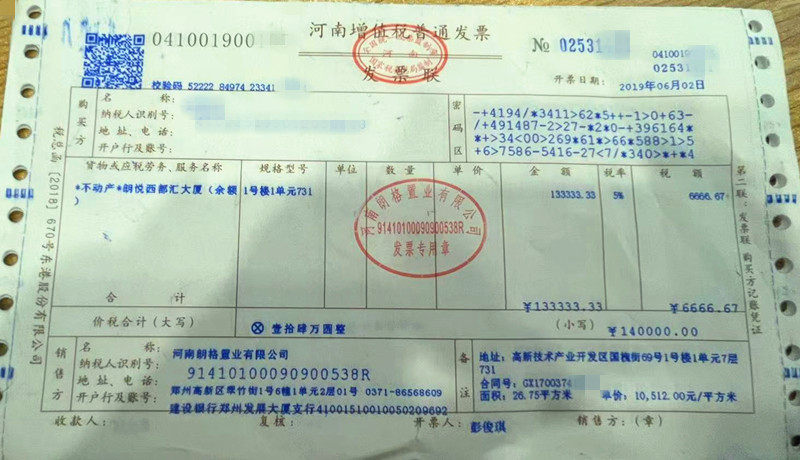 041001900
河南增值税普通发票
发票联
全国统一发票监制章
河南
国家税务总局监制
№ 02531
041001900
02531
校验码 52222 84974 23341
开票日期: 2019年06月02日
购买方
名称:
纳税人识别号:
地址、电话:
开户行及账号:
密码区
-+4194/*3411>62*5++-1>0+63-
/+491487-2>27-*2*0-+396164*
*+>34<00>269*61*>66*588>1>5
+6>7586-5416-27<7/*340>*+*4
货物或应税劳务、服务名称 规格型号 单位 数量 单价 金额 税率 税额
*不动产*朗悦西都汇大厦(余额) 1号楼1单元731 133333.33 5% 6666.67
河南朗格置业有限公司
91410100090900538R
发票专用章
合计 ¥133333.33 ¥6666.67
价税合计(大写) ⊗壹拾肆万圆整 (小写) ¥140000.00
销售方
名称: 河南朗格置业有限公司
纳税人识别号: 91410100090900538R
地址、电话: 郑州高新区翠竹街1号6幢1单元2层01号 0371-86568609
开户行及账号: 建设银行郑州发展大厦支行41001510010050209692
备注
地址: 高新技术产业开发区国槐街69号1号楼1单元7层
731
合同号: GX1700374
面积: 26.75平方米 单价: 10,512.00元/平方米
收款人: 复核: 开票人: 彭俊琪 销售方:(章)
税总函[2018]670号东港股份有限公司
第二联:发票联 购买方记账凭证